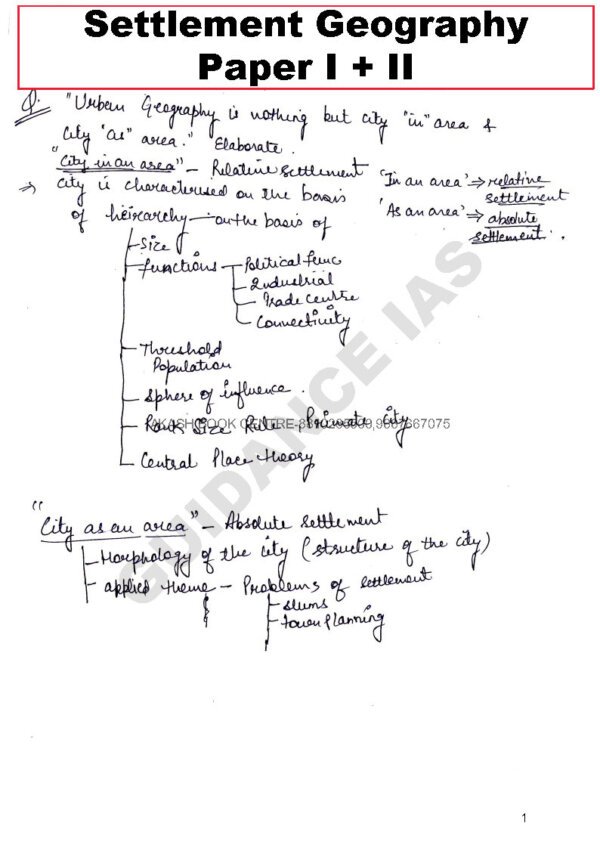 Settlement Geography
Paper I + II
Q. "Urban Geography is nothing but city "in" area &
city "as" area." Elaborate.
"City in an area" – Relative settlement
'In an area' ⇒ relative settlement
⇒ city is characterised on the basis
'As an area' ⇒ absolute settlement.
of heirarchy – on the basis of
Size
functions – Political func
Industrial
Trade centre
Connectivity
Threshold
Population
Sphere of influence.
Rank Size Rule, Primate city
AKASH BOOK CENTRE-
Central Place theory
"City as an area" – Absolute settlement
Morphology of the city (structure of the city)
applied theme – Problems of settlement
slums
town planning
GUIDANCE IAS
1